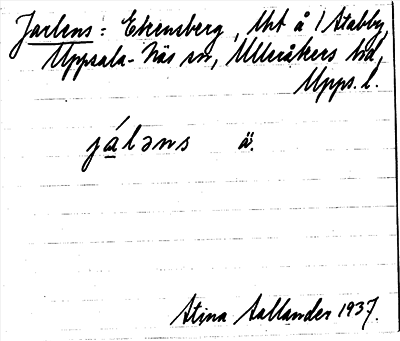 Jarlens: Ekensberg, lht å 1 Stabby,
Uppsala-Näs sn, Ulleråkers hd,
Upps. l.
jáləns ä.
Stina Sallander 1937.